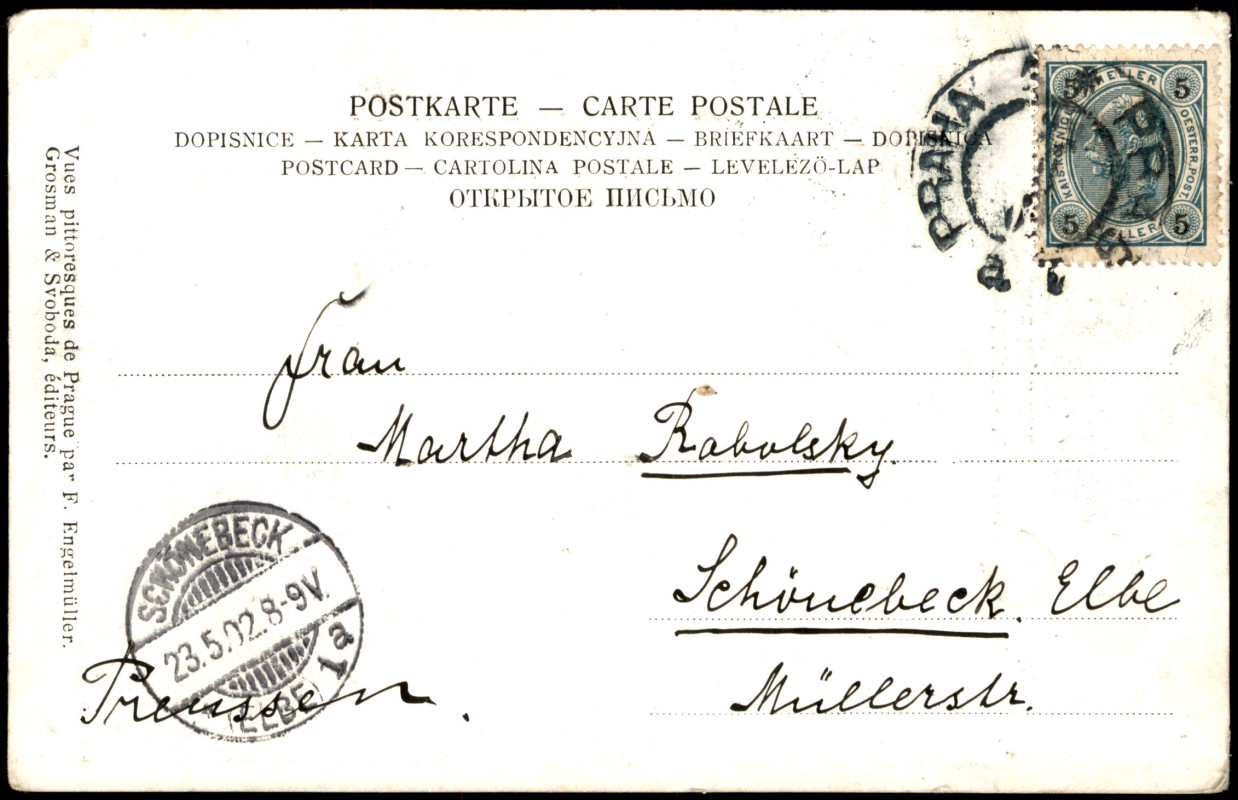 POSTKARTE — CARTE POSTALE
DOPISNICE — KARTA KORESPONDENCYJNA — BRIEFKAART — DOPISNICA
POSTCARD — CARTOLINA POSTALE — LEVELEZÖ-LAP
ОТКРЫТОЕ ПИСЬМО
PRAHA
a
5 5
KAISERL. KÖNIGL. OESTERR. POST
HELLER
5 5
HELLER
Vues pittoresques de Prague par F. Engelmüller.
Grosman & Svoboda, éditeurs.
Frau
Martha Robolsky.
Schönebeck. Elbe
Müllerstr.
Preussen.
SCHÖNEBECK
23.5.02.8-9V.
(ELBE) 1a